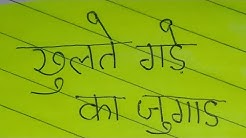 खुलते गड़े
का जुगाड